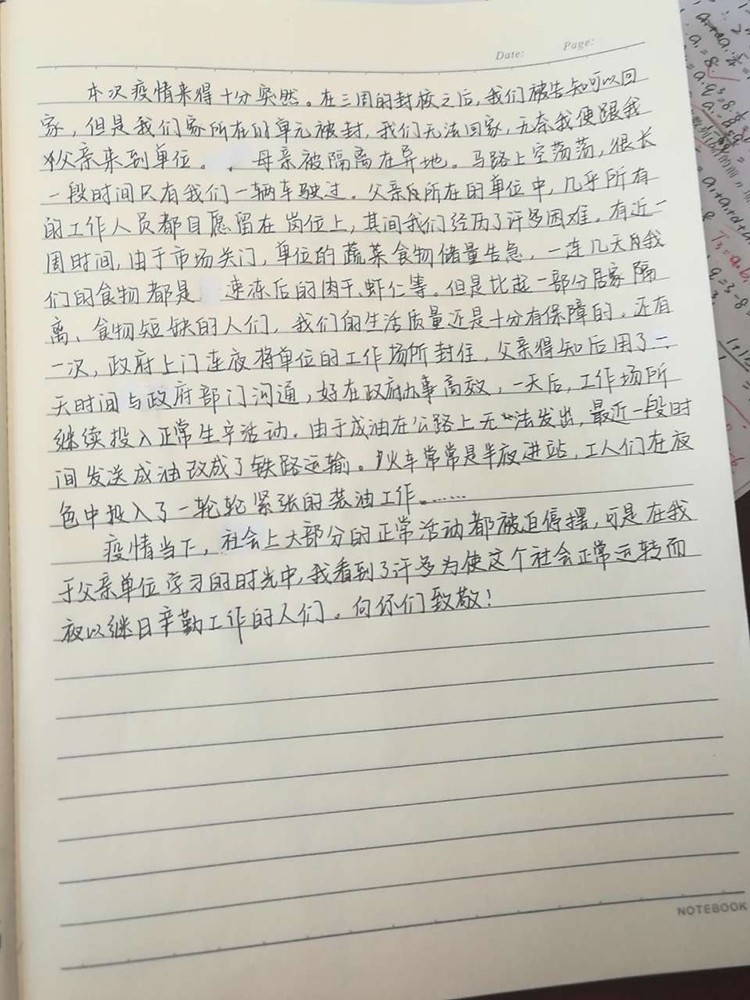 Date: Page:
本次疫情来得十分突然。在三周的封校之后,我们被告知可以回
家,但是我们家所在的单元被封,我们无法回家,无奈我便跟我
父亲来到单位。 母亲被隔离在异地。马路上空荡荡,很长
一段时间只有我们一辆车驶过。父亲所在的单位中,几乎所有
的工作人员都自愿留在岗位上,其间我们经历了许多困难。有近一
周时间,由于市场关门,单位的蔬菜食物储量告急,一连几天我
们的食物都是 速冻后的肉干、虾仁等。但是比起一部分居家隔
离、食物短缺的人们,我们的生活质量还是十分有保障的。还有
一次,政府上门连夜将单位的工作场所封住,父亲得知后用了一
天时间与政府部门沟通,好在政府办事高效,一天后,工作场所
继续投入正常生产活动。由于成油在公路上无法发出,最近一段时
间发送成油改成了铁路运输。火车常常是半夜进站,工人们在夜
色中投入了一轮轮紧张的装油工作。……
疫情当下,社会上大部分的正常活动都被迫停摆,可是在我
于父亲单位学习的时光中,我看到了许多为使这个社会正常运转而
夜以继日辛勤工作的人们。向你们致敬!
NOTEBOOK